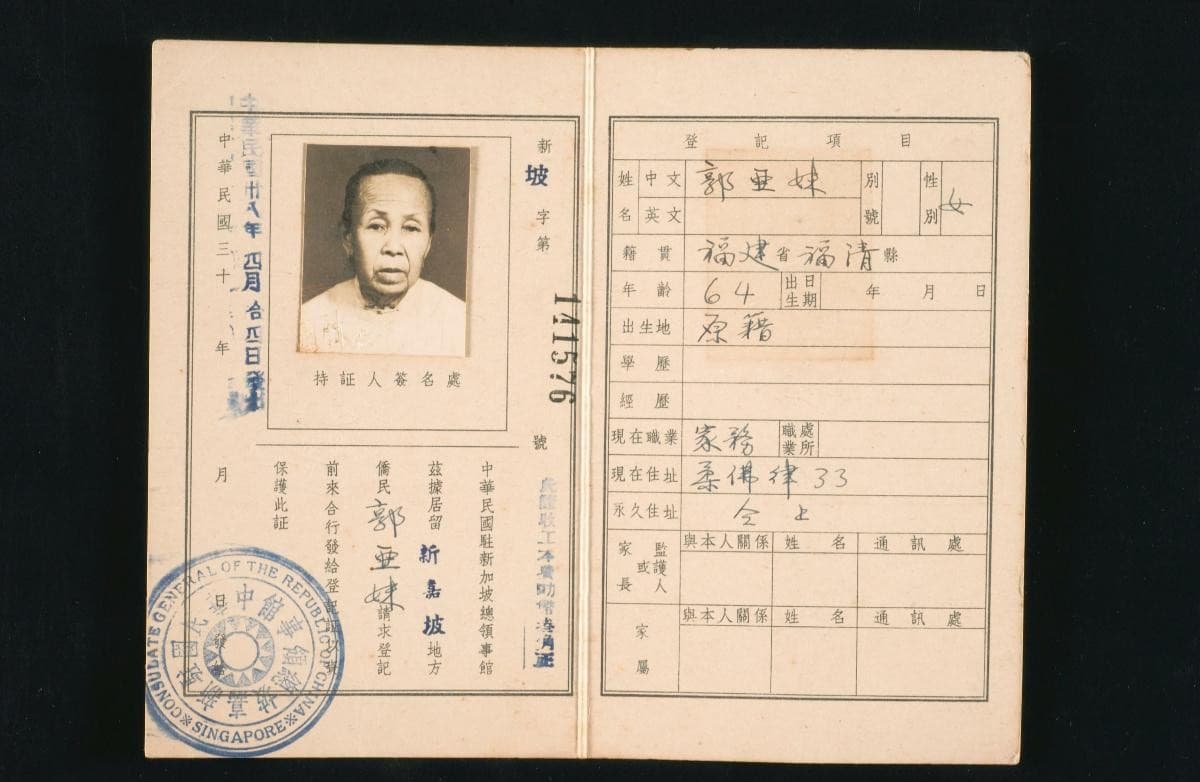 新
坡
字第
141576
號
中華民國駐新加坡總領事館
茲據居留新嘉坡地方
僑民郭亜妹請求登記
前來合行發給登記証
保護此証
持証人簽名處
中華民國三十 年
月
日發
中華民國卅八年四月
日發
CONSULATE GENERAL OF THE REPUBLIC OF CHINA
SINGAPORE
登記項目
姓名 中文 郭亜妹 別號 性別 女
英文
籍貫 福建省福清縣
年齡 64 出生日期 年 月 日
出生地 原籍
學歷
經歷
現在職業 家務 職業處所
現在住址 柔佛律33
永久住址 仝上
家長或監護人 與本人關係 姓名 通訊處
家屬 與本人關係 姓名 通訊處